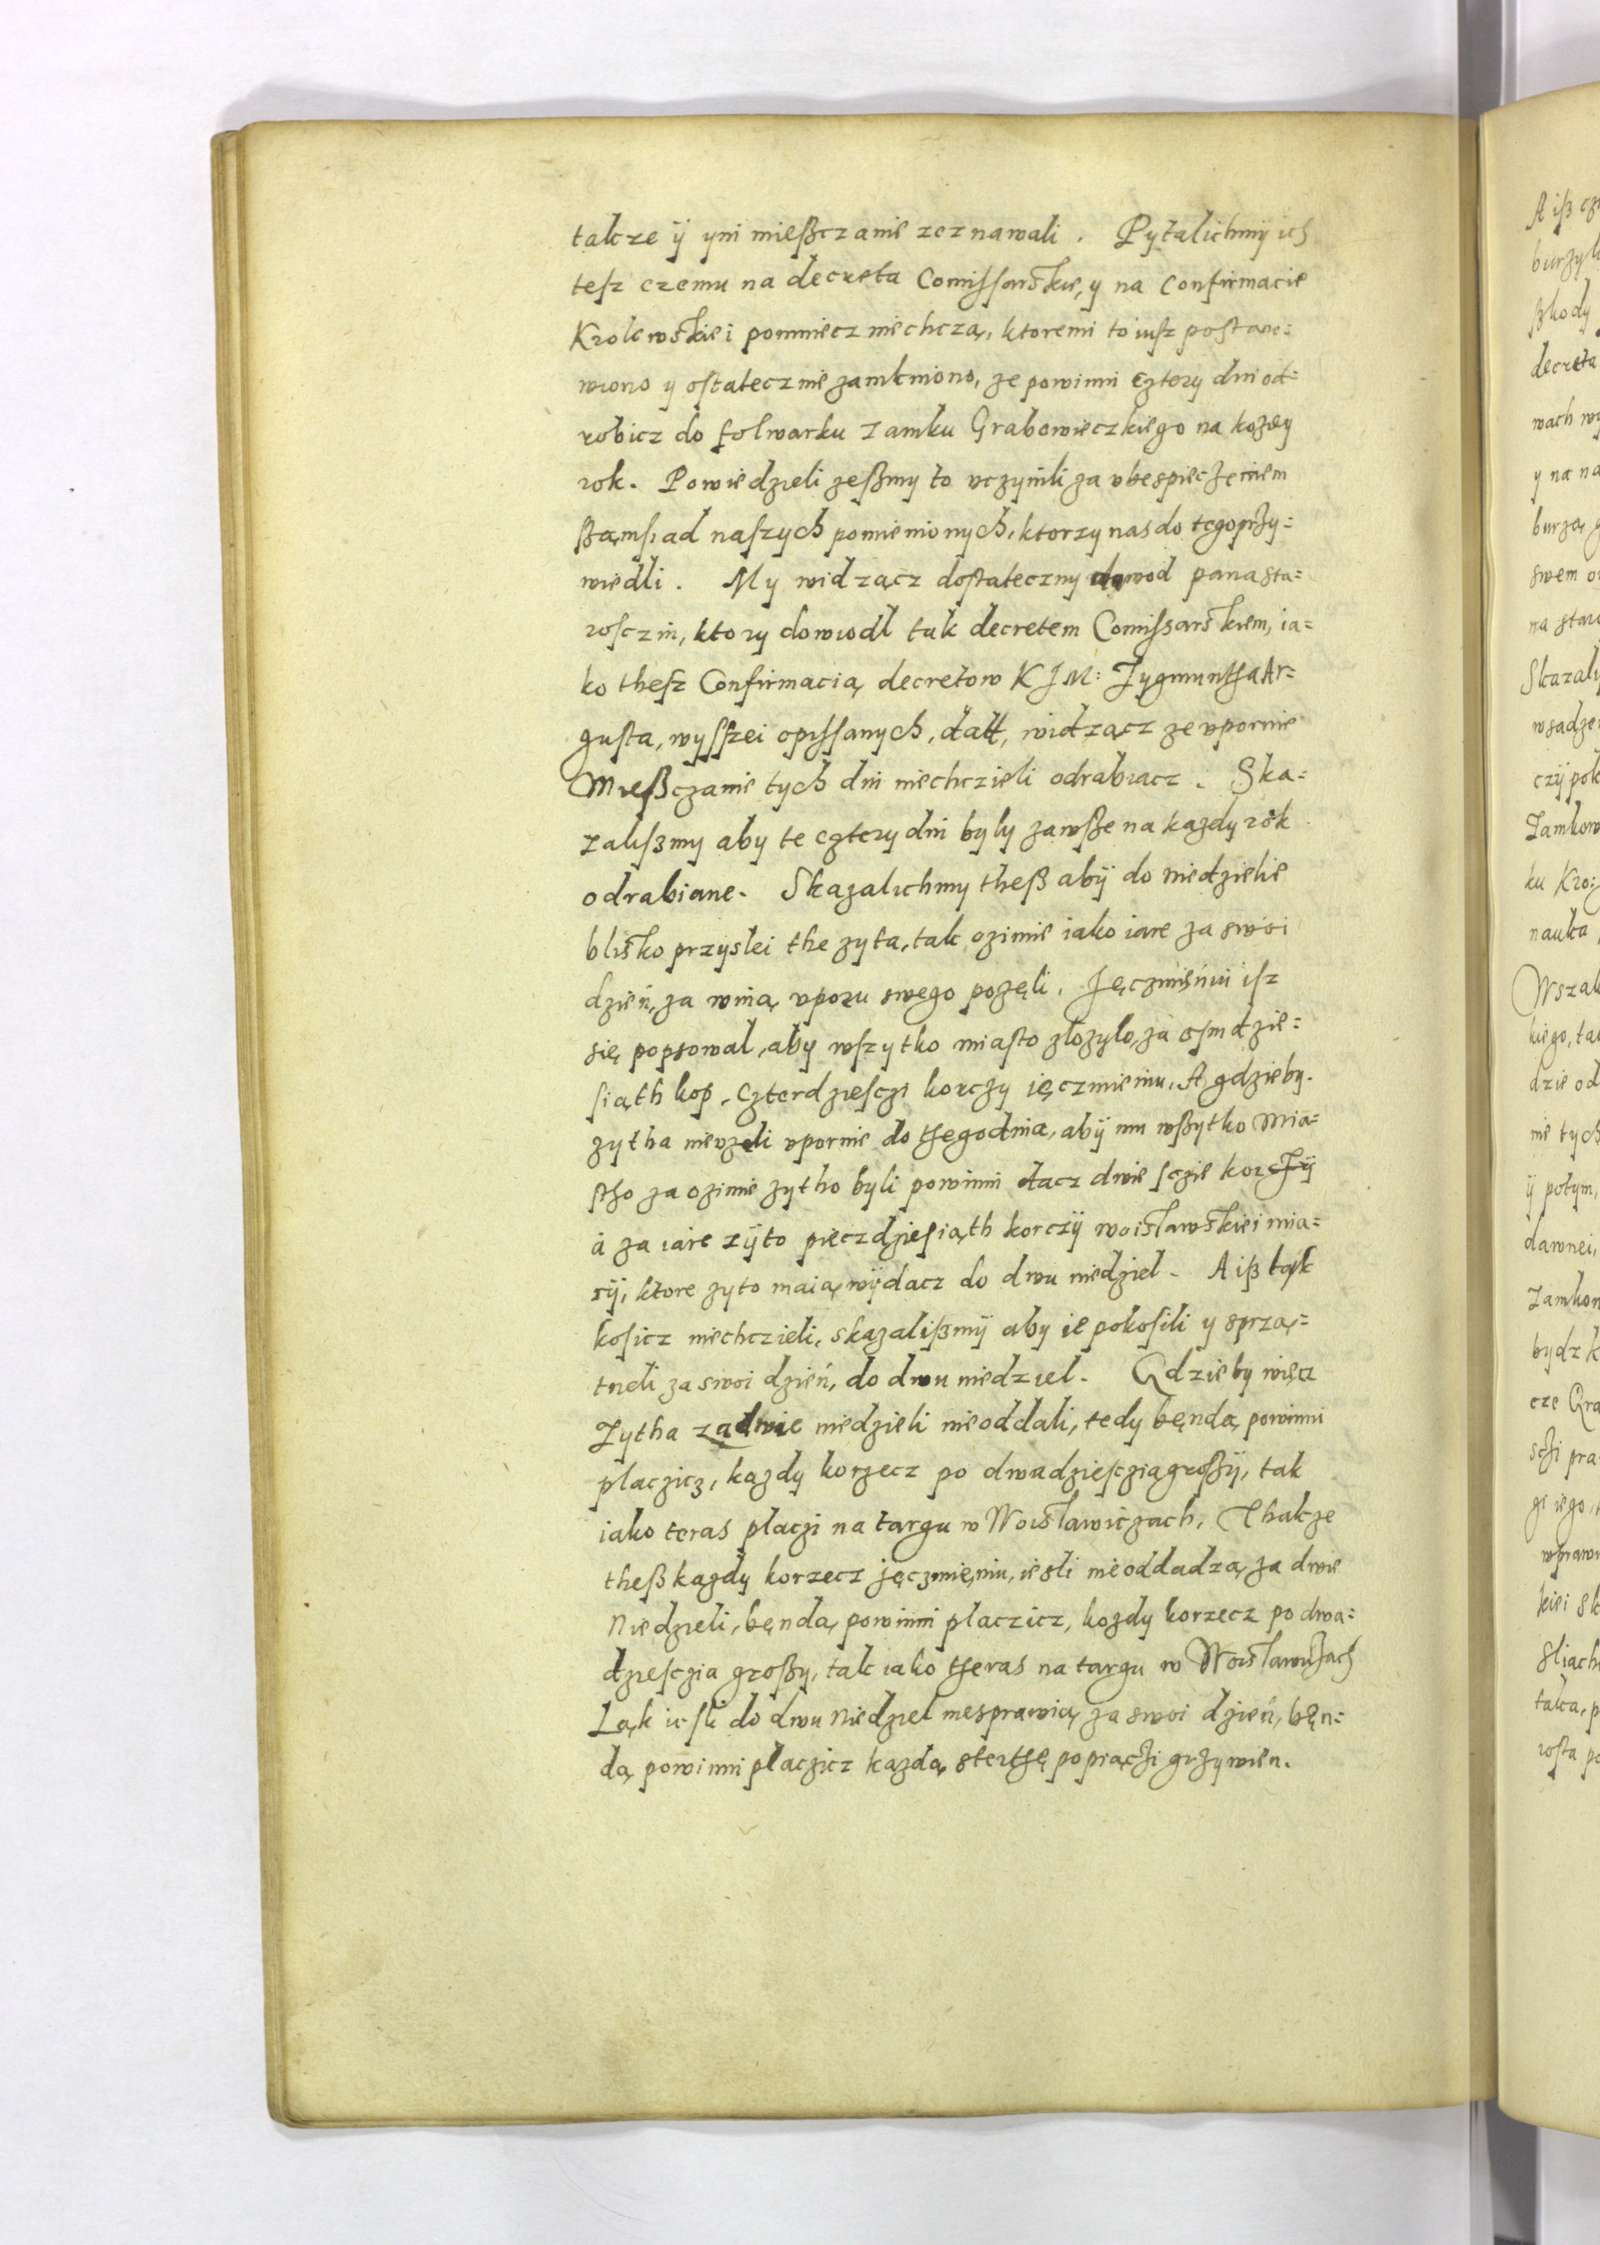 takze ÿ yni mießczanie zeznawali. Pytalichmy ich
tesz czemu na decreta Comissarskie, y na Confirmacie
Krolewskiei pomniecz niechczą, ktoremi to iusz postan=
wiono y ostatecznie zamkniono, ze powinni cztery dni od=
robicz do folwarku zamku Grabowieczkiego na kozdy
rok. Powiedzieli zeßmy to vczynili za vbespieczeniem
ßąmsiad naszych pomienionych, ktorzy nas do tego przy=
wiedli. My widzącz dostateczny dowod pana sta=
rosczin, ktory dowiodl tak decretem Comissarskiem, ia=
ko thesz Confirmacią decretow K J M: Zygmuntha Au=
gusta, wysszei opissanych, dall, widzącz ze vpornie
Mießczanie tych dni niechczieli odrabiacz. Ska=
zaliszmy aby te cztery dni byly zawsze na kazdy rok
odrabiane. Skazalichmy theß abÿ do niedzielie
blisko przyslei the zyta, tak ozimie iako iare za swoi
dzień, za winą vporu swego pożęli. Jęczmieniu isz
się popsowal, aby wszytko miasto zlozylo, za osmdzie=
siąth kop, czterdziesczi korczy ięczmieniu. A gdzieby
zytha nieżęli vpornie do thegodnia, abÿ mu wßytko mia=
stho za ozimie zytho byli powinni dacz dwie sczie korczÿ
à za iare zÿto pieczdziesiąth korczÿ woislawskiei mia=
rÿ, ktore zyto maią wÿdacz do dwu niedziel. A iß łąk
kosicz niechczieli, skazalißmÿ aby ie pokosili y sprzą=
tneli za swoi dzień, do dwu niedziel. Gdzieby więcz
Zytha za dwie niedzieli nieoddali, tedy bęndą powinni
placzicz, kazdy korzecz po dwadziesczia groszÿ, tak
iako teras placzi na targu w Woislawiczach, Thakze
theß kazdy korzecz jęczmięniu, iesli nieoddadzą za dwie
Niedzieli, bęndą powinni placzicz, kozdy korzecz po dwa=
dziesczia großy, tak iako theras na targu w Woislawiczach
Łąk iesli do dwu Niedziel niesprawią za swoi dzień, bęn=
dą powinni placzicz kazdą sterthę po piączi grzywien.